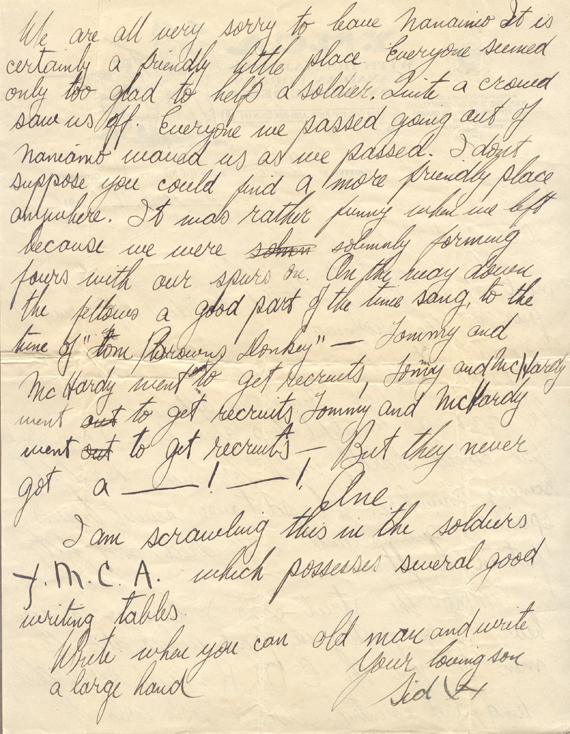 We are all very sorry to leave Nanaimo It is
certainly a friendly little place Everyone seemed
only too glad to help a soldier. Quite a crowd
saw us off. Everyone we passed going out of
Naniamo waved us as we passed. I don't
suppose you could find a more friendly place
anywhere. It was rather funny when we left
because we were solemn solemnly forming
fours with our spurs on. On the way down
the fellows a good part of the time sang to the
tune of "Tom Browns Donkey" — Tommy and
McHardy went out to get recruits, Tommy and McHardy
went out to get recruits Tommy and McHardy
went out to get recruits — But they never
got a ——! ——! One
I am scrawling this in the soldiers
Y.M.C.A. which possesses several good
writing tables.
Write when you can old man and write
a large hand
Your loving son
Sid